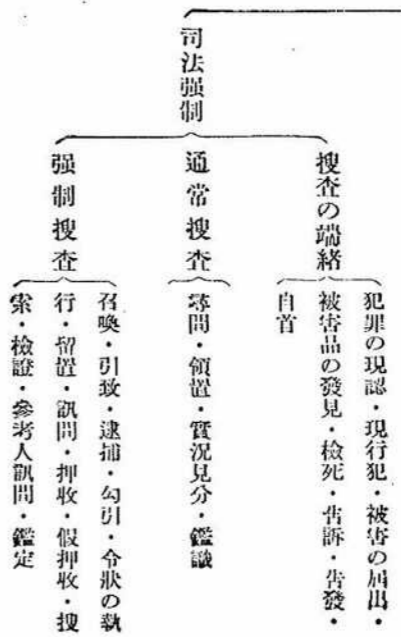 司法强制
搜査の端緒
犯罪の現認・現行犯・被害の屆出・
被害品の發見・檢死・告訴・告發・
自首
通常搜査
尋問・領置・實況見分・鑑識
强制搜査
召喚・引致・逮捕・勾引・令狀の執
行・留置・訊問・押收・假押收・搜
索・檢證・參考人訊問・鑑定